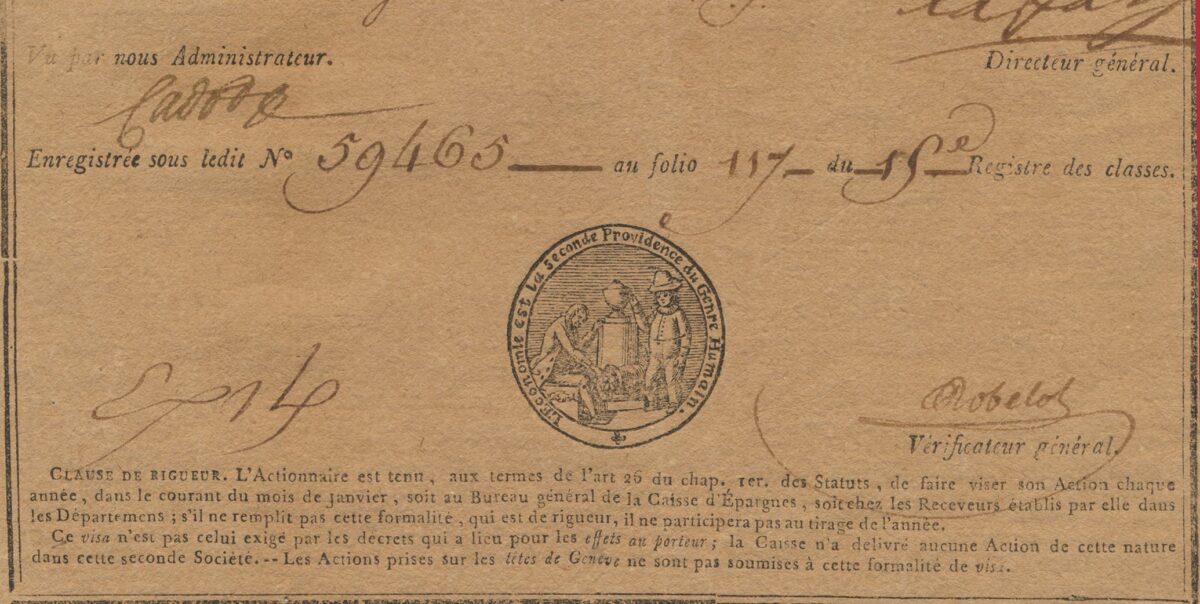 Vu par nous Administrateur.
Directeur général.
Enregistrée sous ledit N° 59465 au folio 117 du 15e Registre des classes.
L'Économie est la seconde Providence du Genre Humain.
Robelot
Vérificateur général.
CLAUSE DE RIGUEUR. L'Actionnaire est tenu, aux termes de l'art 26 du chap. 1er. des Statuts, de faire viser son Action chaque
année, dans le courant du mois de Janvier, soit au Bureau général de la Caisse d'Épargnes, soit chez les Receveurs établis par elle dans
les Départemens; s'il ne remplit pas cette formalité, qui est de rigueur, il ne participera pas au tirage de l'année.
Ce visa n'est pas celui exigé par les décrets qui a lieu pour les effets au porteur; la Caisse n'a delivré aucune Action de cette nature
dans cette seconde Société. -- Les Actions prises sur les têtes de Genève ne sont pas soumises à cette formalité de visa.